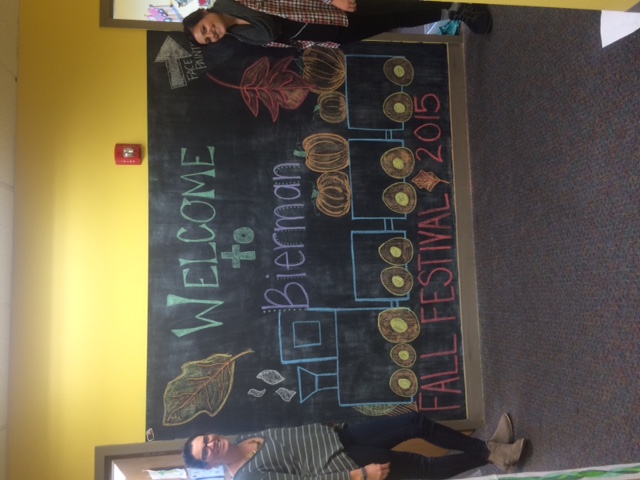 WELCOME
to
Bierman
FACE
PAINT
FALL FESTIVAL 2015